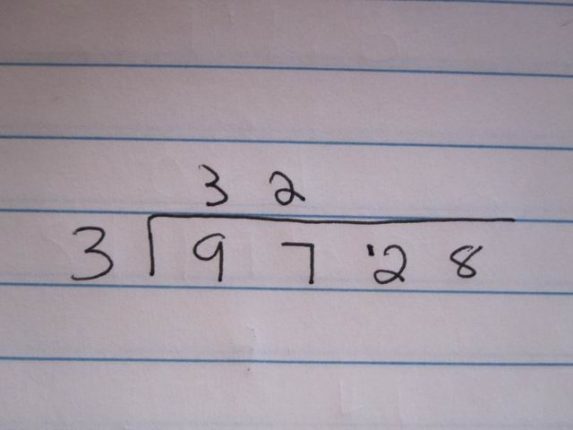 3 2
3 9 7 '2 8